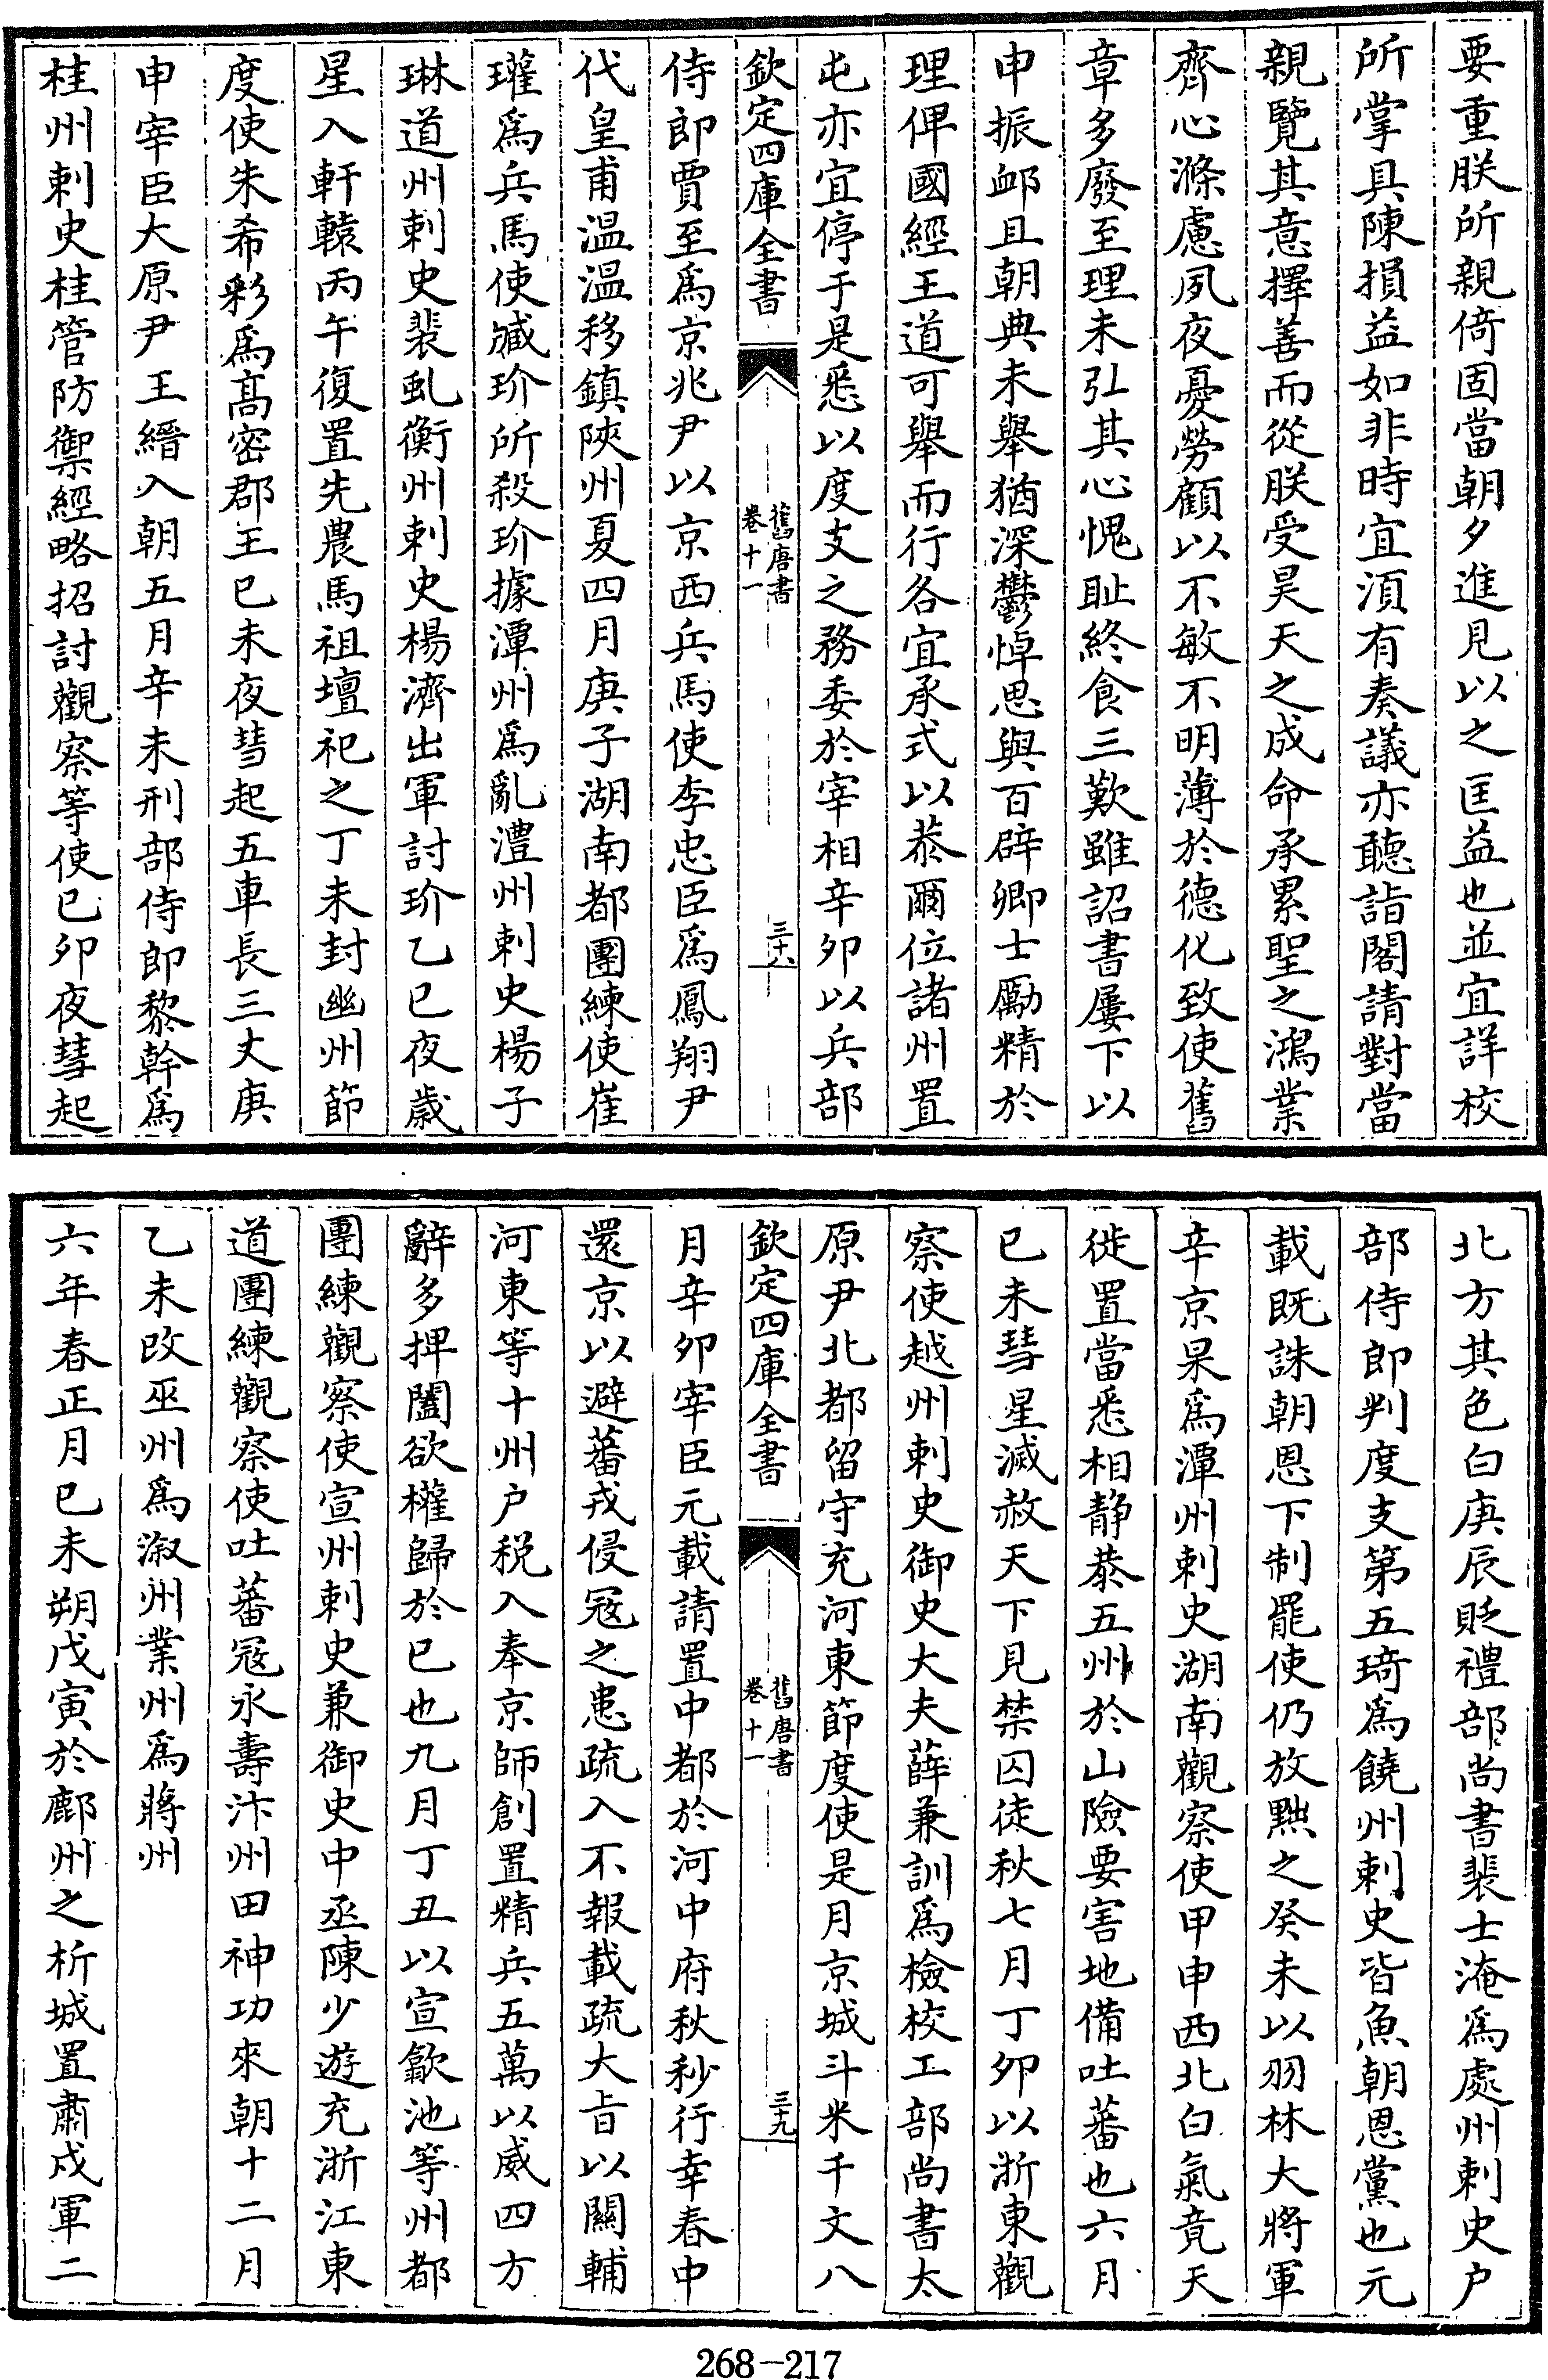 要重朕所親倚固當朝夕進見以之匡益也並宜詳校
所掌具陳損益如非時宜須有奏議亦聽詣閤請對當
親覽其意擇善而從朕受昊天之成命承累聖之鴻業
齊心滌慮夙夜憂勞顧以不敏不明薄於德化致使舊
章多廢至理未弘其心愧耻終食三歎雖詔書屢下以
申振卹且朝典未舉猶深鬱悼思與百辟卿士勵精於
理俾國經王道可舉而行各宜承式以恭爾位諸州置
屯亦宜停于是悉以度支之務委於宰相辛卯以兵部
欽定四庫全書
舊唐書
卷十一
三十八
侍郎賈至為京兆尹以京西兵馬使李忠臣為鳳翔尹
代皇甫温温移鎮陜州夏四月庚子湖南都團練使崔
瓘為兵馬使臧玠所殺玠據潭州為亂澧州刺史楊子
琳道州刺史裴虬衡州刺史楊濟出軍討玠乙巳夜歲
星入軒轅丙午復置先農馬祖壇祀之丁未封幽州節
度使朱希彩為髙密郡王已未夜彗起五車長三丈庚
申宰臣大原尹王縉入朝五月辛未刑部侍郎黎幹為
桂州刺史桂管防禦經略招討觀察等使已卯夜彗起
北方其色白庚辰貶禮部尚書裴士淹為處州刺史户
部侍郎判度支第五琦為饒州刺史皆魚朝恩黨也元
載既誅朝恩下制罷使仍放黜之癸未以羽林大將軍
辛京杲為潭州刺史湖南觀察使甲申西北白氣竟天
徙置當悉柘静恭五州於山險要害地備吐蕃也六月
已未彗星滅赦天下見禁囚徒秋七月丁卯以浙東觀
察使越州刺史御史大夫薛兼訓為檢校工部尚書太
原尹北都留守充河東節度使是月京城斗米千文八
欽定四庫全書
舊唐書
卷十一
三十九
月辛卯宰臣元載請置中都於河中府秋杪行幸春中
還京以避蕃戎侵冦之患疏入不報載疏大旨以關輔
河東等十州户税入奉京師創置精兵五萬以威四方
辭多捭闔欲權歸於已也九月丁丑以宣歙池等州都
團練觀察使宣州刺史兼御史中丞陳少遊充浙江東
道團練觀察使吐蕃冦永壽汴州田神功來朝十二月
乙未改巫州為溆州業州為蔣州
六年春正月已未朔戊寅於鄜州之析城置肅戍軍二
268-217